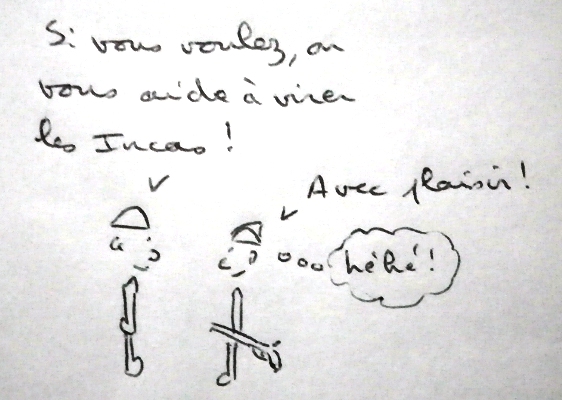 Si vous voulez, on
vous aide à virer
les Incas !
Avec plaisir !
héhé !